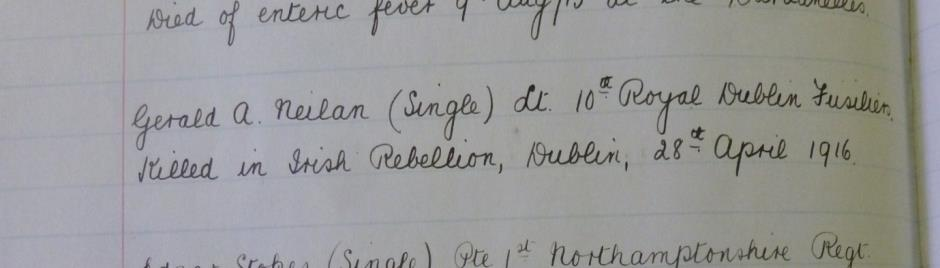 Died of enteric fever 9 Aug/15 at the Dardanelles.
Gerald A. Neilan (Single) Lt. 10th Royal Dublin Fusiliers,
Killed in Irish Rebellion, Dublin, 28th April 1916.
(Single) Pte 1st Northamptonshire Regt.